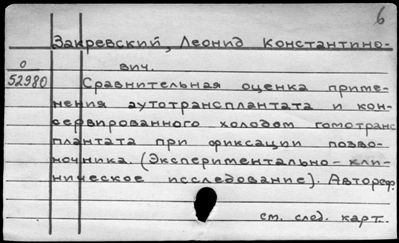 6
Закревский, Леонид Константино-
вич.
О
52980
Сравнительная оценка приме-
нения аутотрансплантата и кон-
сервированного холодом гомотранс
плантата при фиксации позво-
ночника. (Экспериментально-кли-
ническое исследование). Автореф.
см. след. карт.